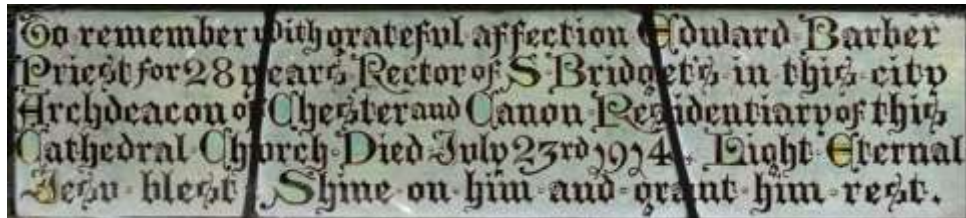 To remember with grateful affection Edward Barber
Priest for 28 years Rector of S Bridget's in this city
Archdeacon of Chester and Canon Residentiary of this
Cathedral Church Died July 23rd 1914. Light Eternal
Jesu blest Shine on him and grant him rest.